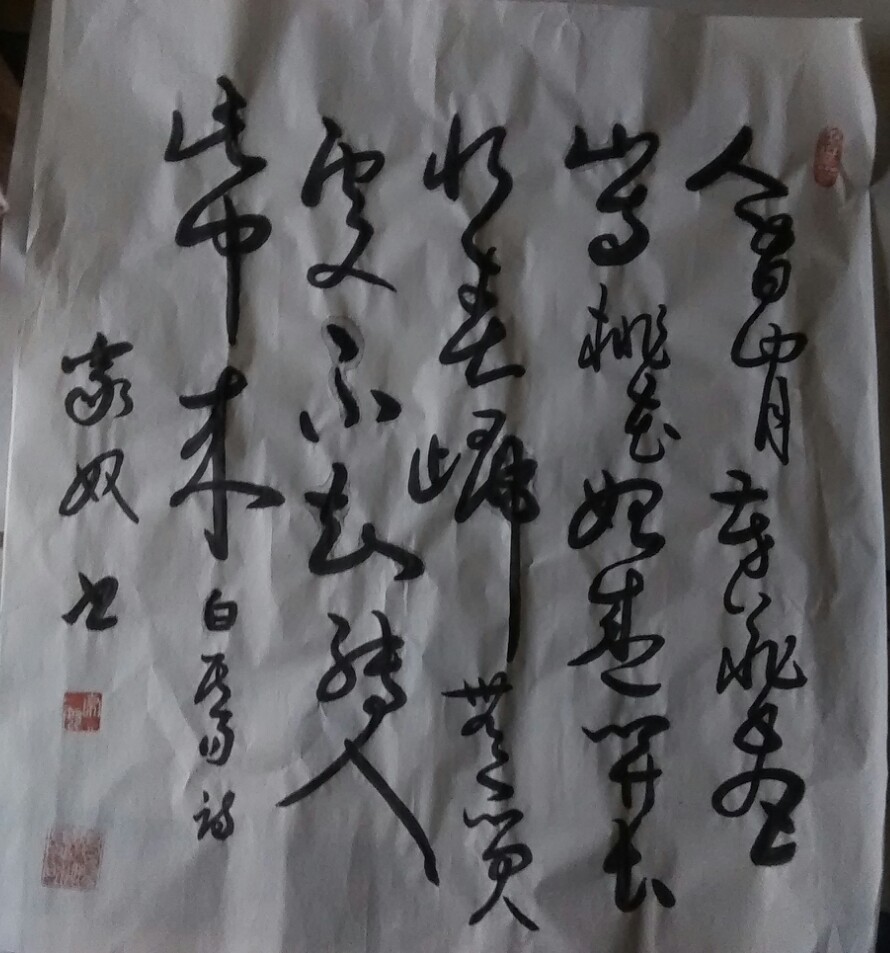 人間四月芳菲盡
山寺桃花始盛開長
恨春歸無覓
處不知轉入
此中来白居易詩
家奴书